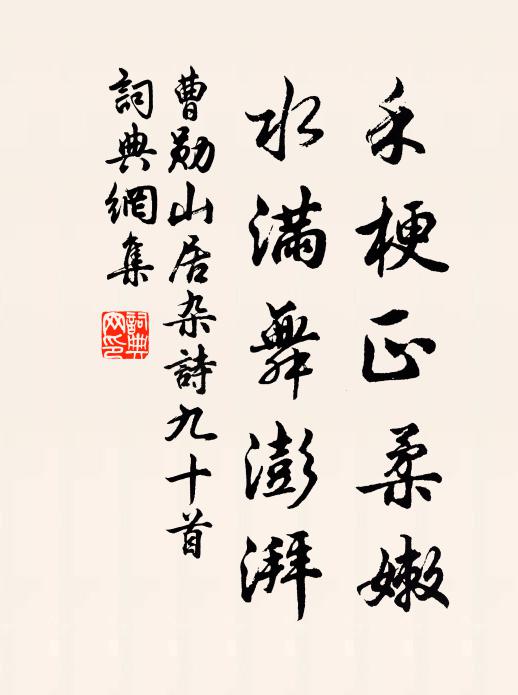 禾梗正柔嫩
水滿舞澎湃
曹勛山居杂詩九十首
詞典網集
詞典
网印